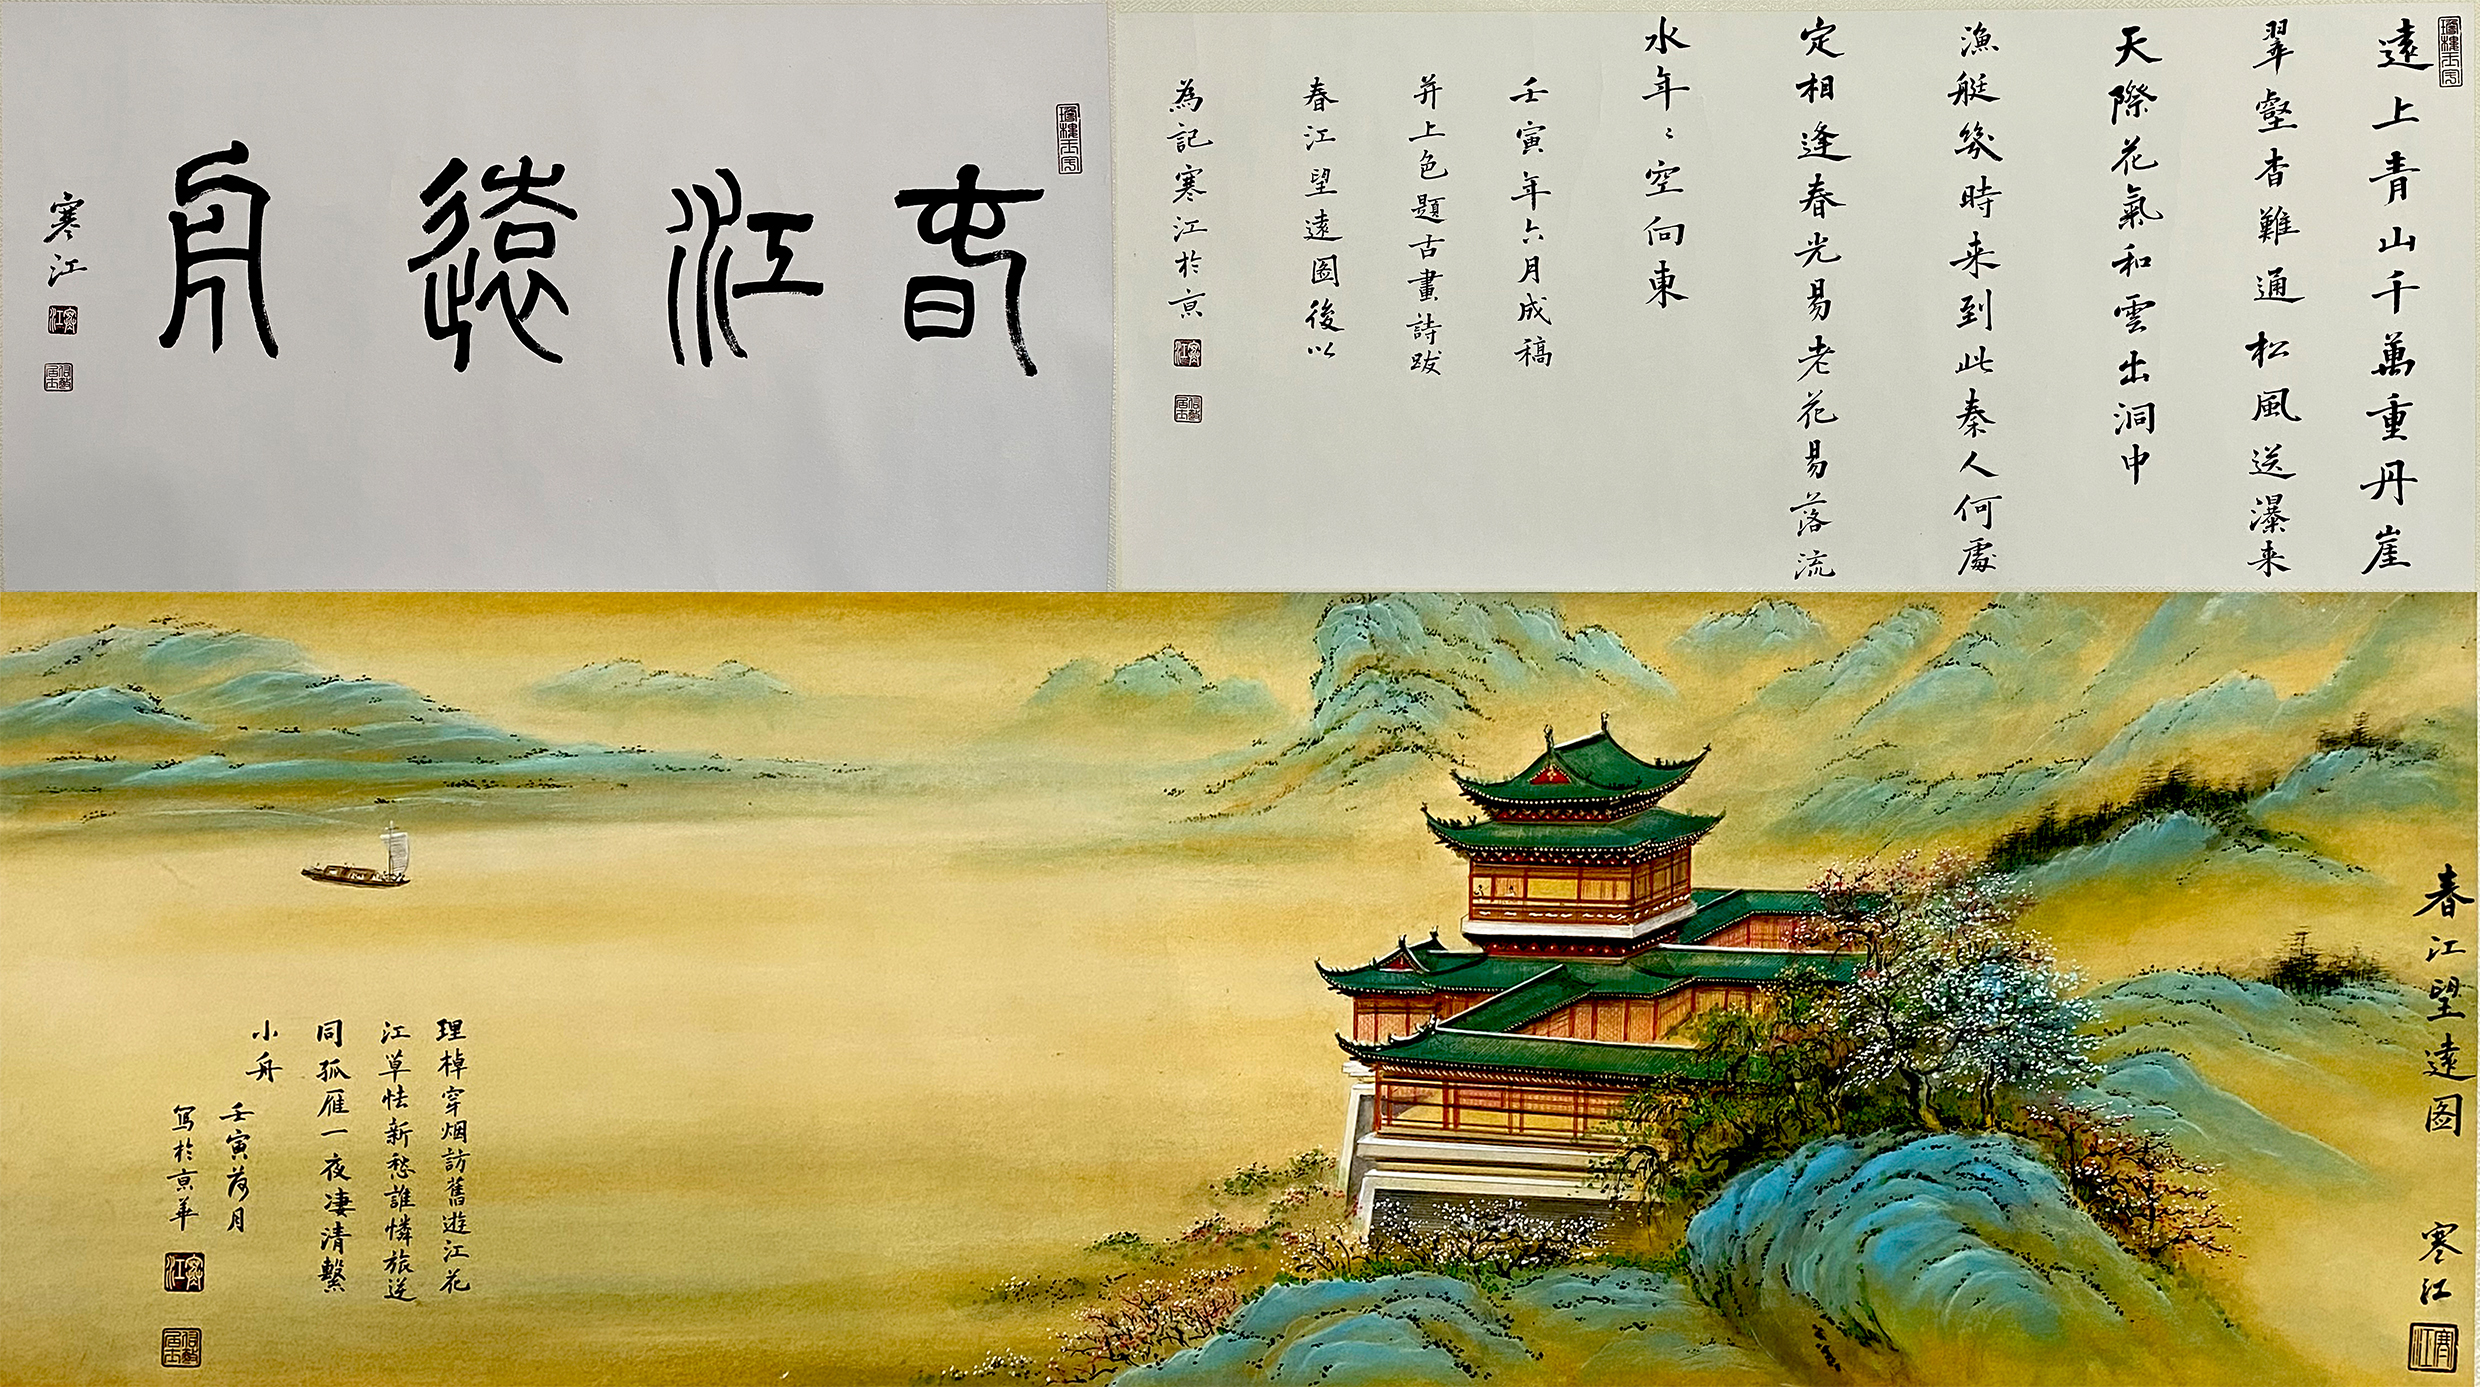 春江遠舟
寒江
寒江
遠上青山千萬重丹崖
翠壑杳難通松風送瀑来
天際花氣和雲出洞中
漁艇幾時来到此秦人何處
定相逢春光易老花易落流
水年〻空向東
壬寅年六月成稿
并上色題古畫詩跋
春江望遠圖後以
為記寒江於京
寒江
春江望遠图
寒江
寒江
理棹穿烟訪舊遊江花
江草怯新愁誰憐旅逆
同孤雁一夜凄清繫
小舟
壬寅荷月
写於京華
寒江